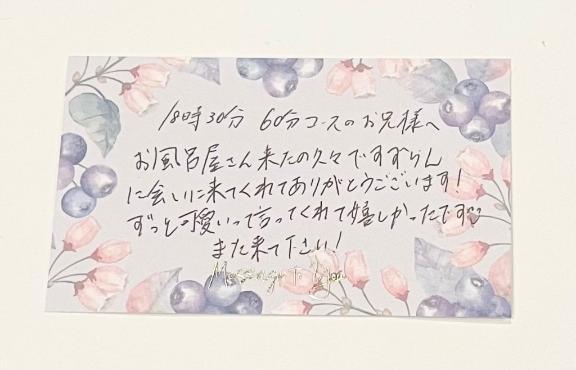 18時30分 60分コースのお兄様へ
お風呂屋さん来たの久々ですずらん
に会いに来てくれてありがとうございます!
ずっと可愛いって言ってくれて嬉しかったです♡
また来て下さい!
Message to You